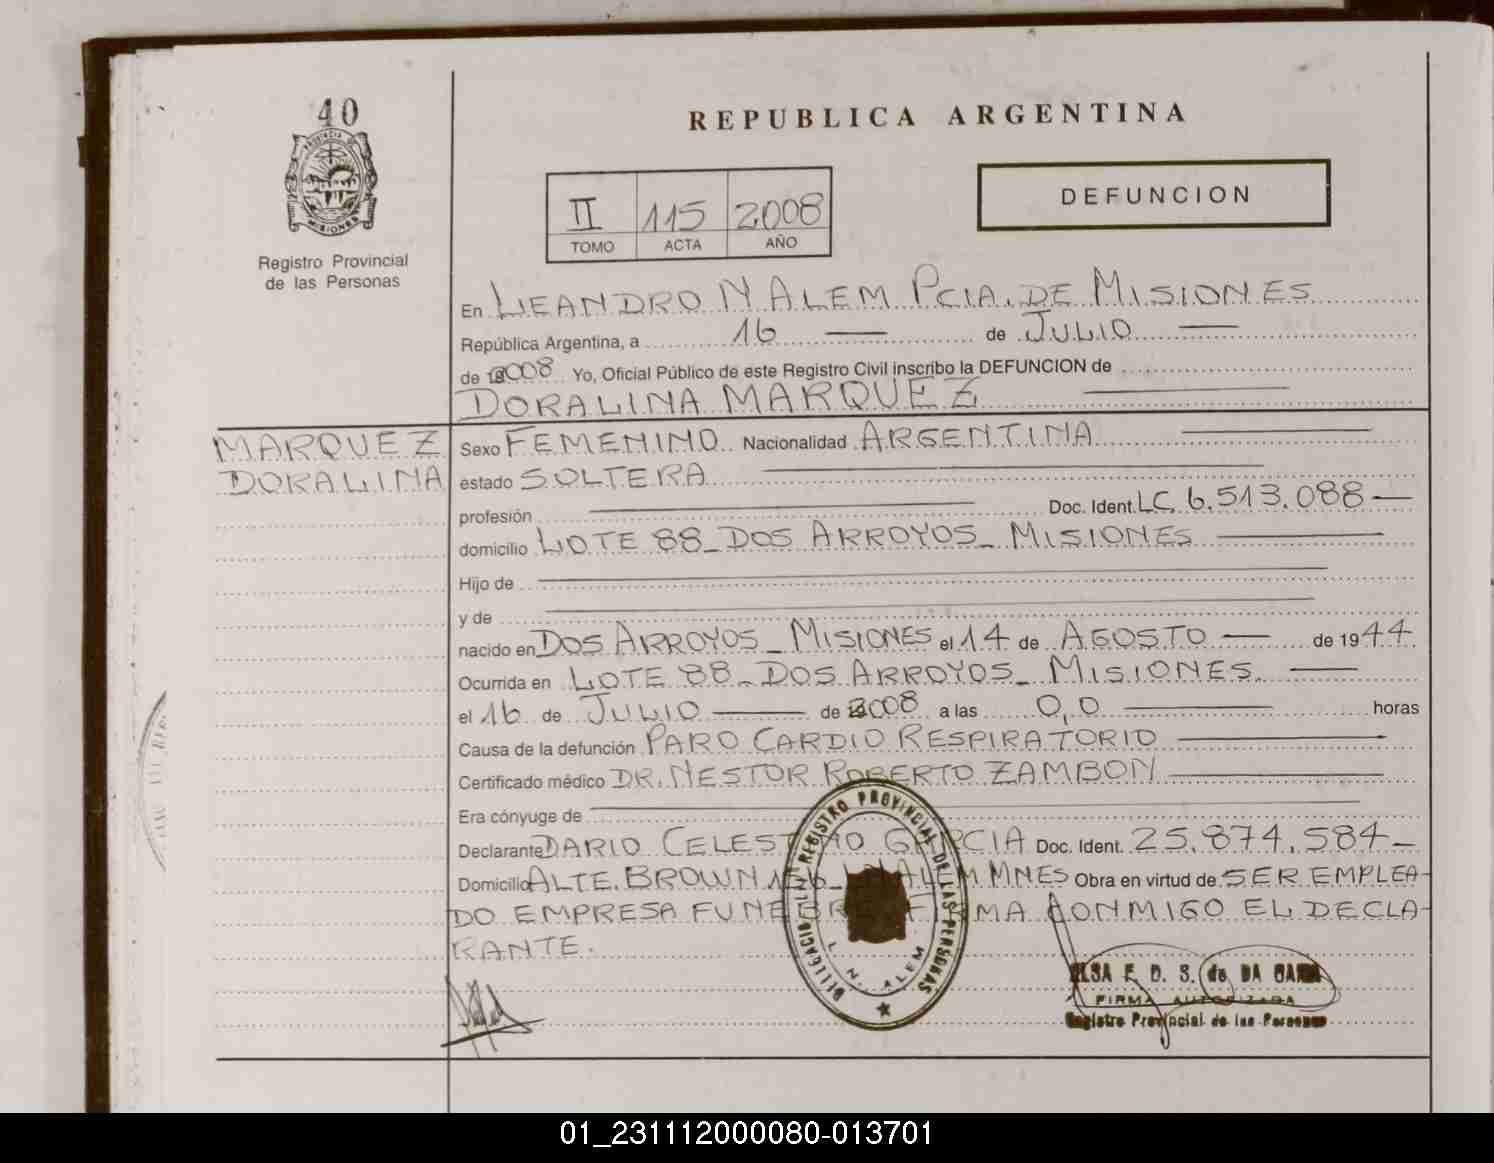 40
PROVINCIA
MISIONES
Registro Provincial
de las Personas
REPUBLICA ARGENTINA
II 115 2008
TOMO ACTA AÑO
DEFUNCION
En LEANDRO N ALEM PCIA. DE MISIONES
República Argentina, a 16 — de JULIO —
de 2008 Yo, Oficial Público de este Registro Civil inscribo la DEFUNCION de
DORALINA MARQUEZ
MARQUEZ
DORALINA
Sexo FEMENINO Nacionalidad ARGENTINA
estado SOLTERA
profesión — Doc. Ident. LC. 6.513.088 —
domicilio LOTE 88_ DOS ARROYOS_ MISIONES
Hijo de
y de
nacido en DOS ARROYOS_ MISIONES el 14 de AGOSTO — de 1944.
Ocurrida en LOTE 88_ DOS ARROYOS_ MISIONES.
el 16 de JULIO — de 2008 a las 0,0 — horas
Causa de la defunción PARO CARDIO RESPIRATORIO
Certificado médico DR. NESTOR ROBERTO ZAMBON
Era cónyuge de
Declarante DARIO CELESTINO GARCIA Doc. Ident. 25.874.584 —
Domicilio ALTE. BROWN L N ALEM MNES Obra en virtud de SER EMPLEA-
DO EMPRESA FUNEBRE. FIRMA CONMIGO EL DECLA-
RANTE.
REGISTRO PROVINCIAL DE LAS PERSONAS
L. N. ALEM
ELSA F. D. S. de DA
FIRMA AUTORIZADA
Registro Provincial de las Personas
01_231112000080-013701